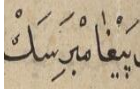 بَيْغَامْبَرِسَكْ